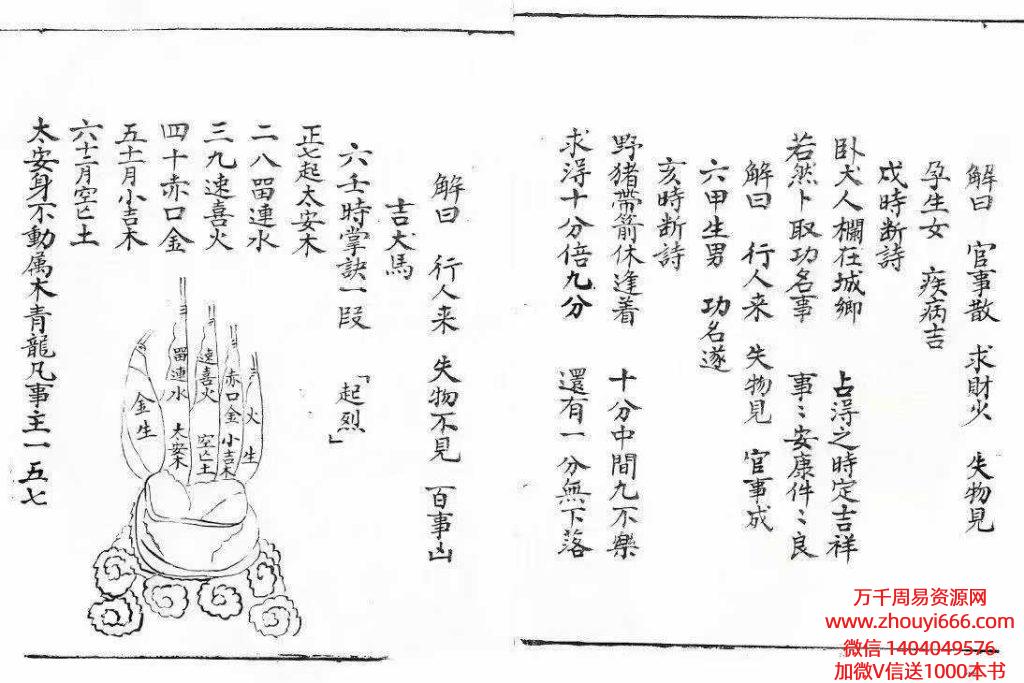 解曰 官事散 求財火 失物見
孕生女 疾病吉
戌時断詩
卧犬人欄在城鄉 占淂之時定吉祥
若然卜取功名事 事〻安康件〻良
解曰 行人来 失物見 官事成
六甲生男 功名遂
亥時断詩
野猪帶箭休逢着 十分中間九不樂
求淂十分倍九分 還有一分無下落
解曰 行人来 失物不見 百事凶
吉犬馬
六壬時掌訣一段 「起烈」
正七起太安木
二八畱連水
三九速喜火
四十赤口金
五十一月小吉木
六十二月空亡土
太安身不動属木青龍凡事主一五七
金生
畱連水 太安木
速喜火 空亡土
赤口金 小吉木
火生
万千周易资源网
www.zhouyi666.com
微信 1404049576
加微V信送1000本书